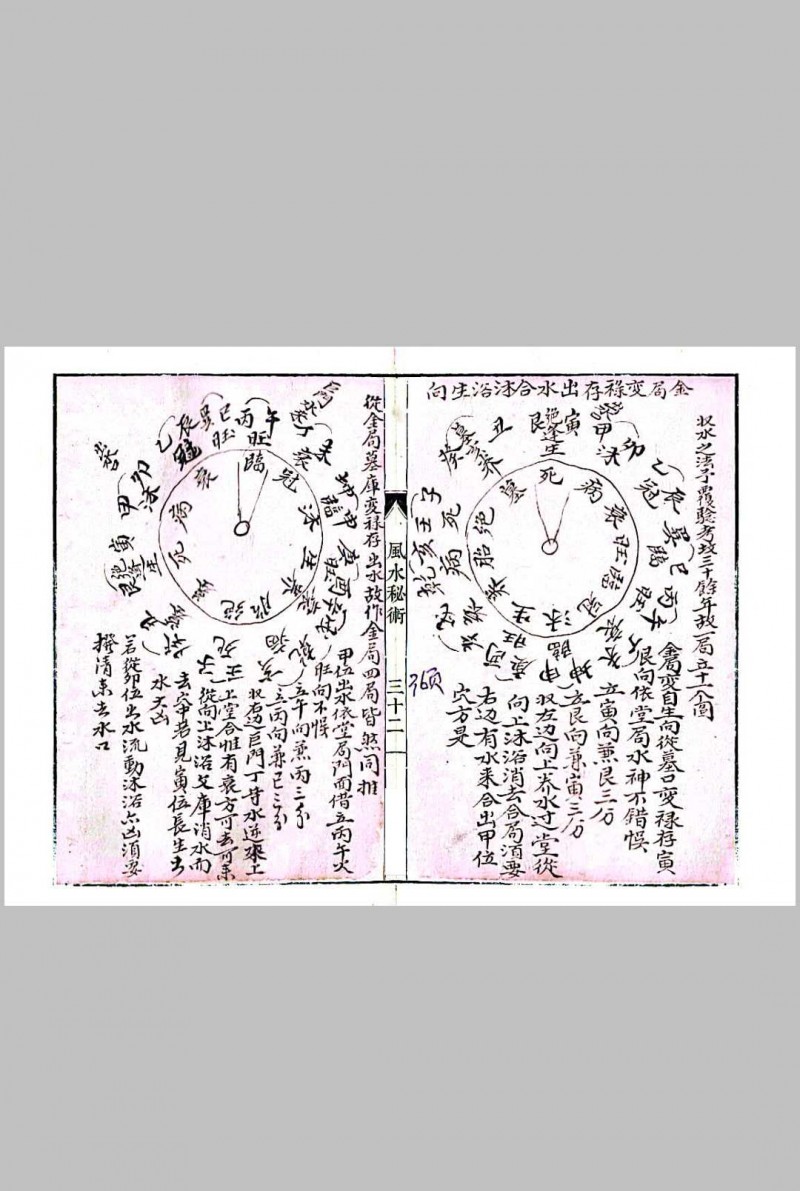 金局变禄存出水合沐浴生向
收水之法予覆驗考校三十餘年故一局立十二个圖
金局变自生向從墓口变禄存寅
艮向依堂局水神不錯悮
立寅向兼艮三分
立艮向兼寅三分
收左边向上养水过堂從
向上沐浴消去合局須要
右边有水来合出甲位
穴方是
艮 寅 甲 卯 乙 辰 巽 巳 丙 午 丁
坤 申 庚
乾 亥 壬 子
癸 丑
絶逢生 沐 冠 臨 旺 衰
生 养 胎 絶 墓 死 病 衰 旺 臨 冠 沐
病 死
風水秘術
三十二
從金局墓庫变禄存出水故作金局四局皆然同推
甲位出水依堂局門而借立丙午火
旺向不悮
立午向兼丙三分
立丙向兼巳三分
收右边巨門丁字水逆来上
上堂合惟有衰方可去可来
從向上沐浴文庫消水而
去穴中若見寅位長生去
水大凶
若從卯位出水流動沐浴六凶須要
撥清来去水口
丙 午 丁 未
坤 申 庚
壬 子
艮 寅 甲 卯 乙 辰 巽 巳
旺 衰 臨
臨 冠 沐 生 养 胎 絶 墓 死 病 衰 旺